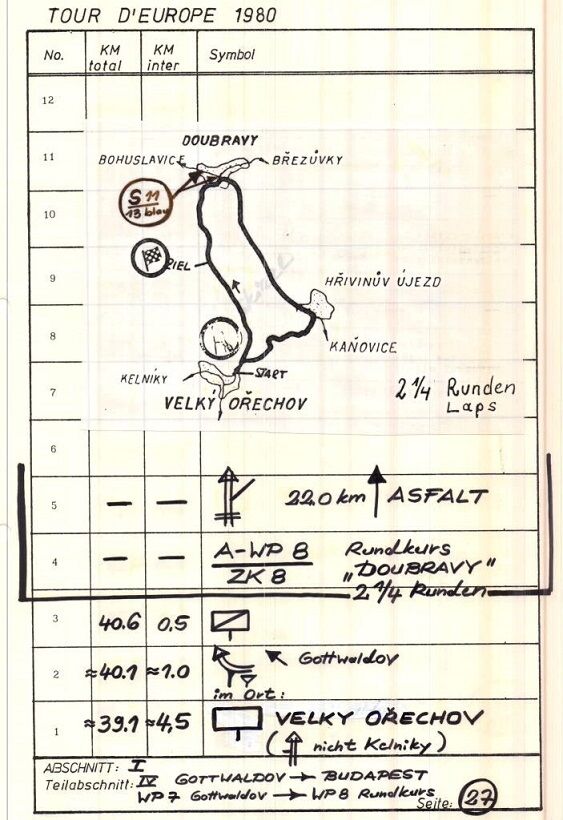 TOUR D'EUROPE 1980
No. KM total KM inter Symbol
12
11
10
9
8
7
6
DOUBRAVY
BOHUSLAVICE BŘEZŮVKY
S 11
13 blau
ZIEL
HŘIVINŮV ÚJEZD
KAŇOVICE
KELNÍKY START
VELKÝ OŘECHOV
2 1/4 Runden
Laps
5 — — 22.0 km ASFALT
4 — — A-WP 8 Rundkurs
ZK 8 „DOUBRAVY"
2 1/4 Runden
3 40.6 0,5
2 ≈40.1 ≈1.0 Gottwaldov
im Ort:
1 ≈39.1 ≈4,5 VELKY OŘECHOV
( nicht Kelniky )
ABSCHNITT: I
Teilabschnitt: IV GOTTWALDOV → BUDAPEST
WP 7 Gottwaldov → WP 8 Rundkurs
Seite: 27